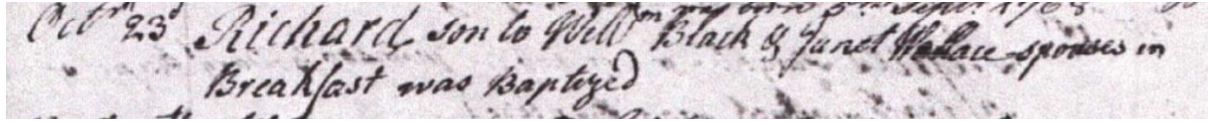 Octr 23d Richard son to Willm Black & Janet Wallace spouses in
Breakfast was Baptized